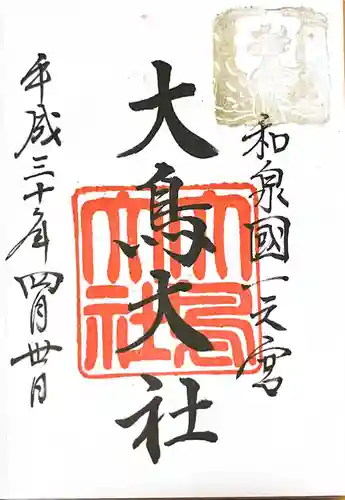 和泉國一之宮
大鳥大社
大鳥大社
平成三十年四月廿日